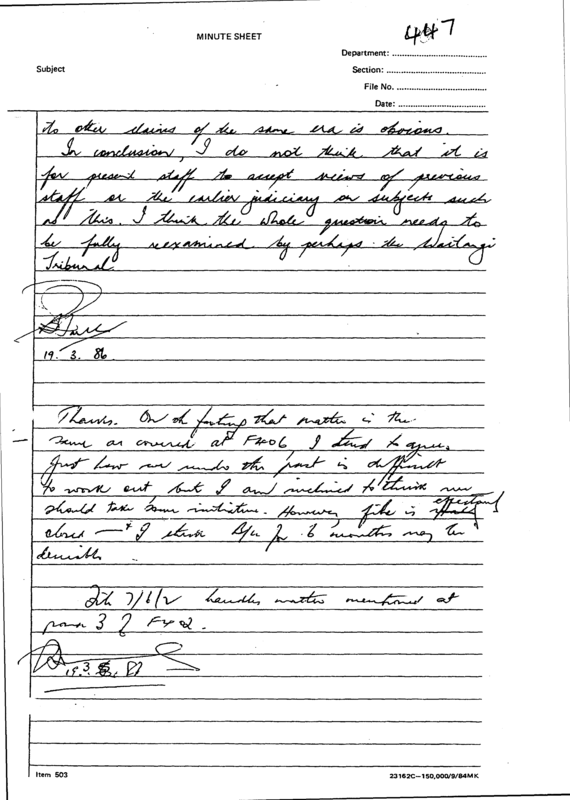 447
MINUTE SHEET
Department:
Subject
Section:
File No.
Date:
to other claims of the same era is obvious.
In conclusion, I do not think that it is
for present staff to accept views of previous
staff or the earlier judiciary on subjects such
as this. I think the whole question needs to
be fully reexamined by perhaps the Waitangi
Tribunal.
19. 3. 86
Thanks. On that matter is the
same as covered at F406, I tend to agree.
Just how we undo the past is difficult
to work out, but I am inclined to think we
should take some initiative. However, file is effectively
closed — I think B/u for 6 months may be
desirable.
7/6/2 handles matter mentioned at
para 3 of
19.3.
Item 503
23162C—150,000/9/84MK